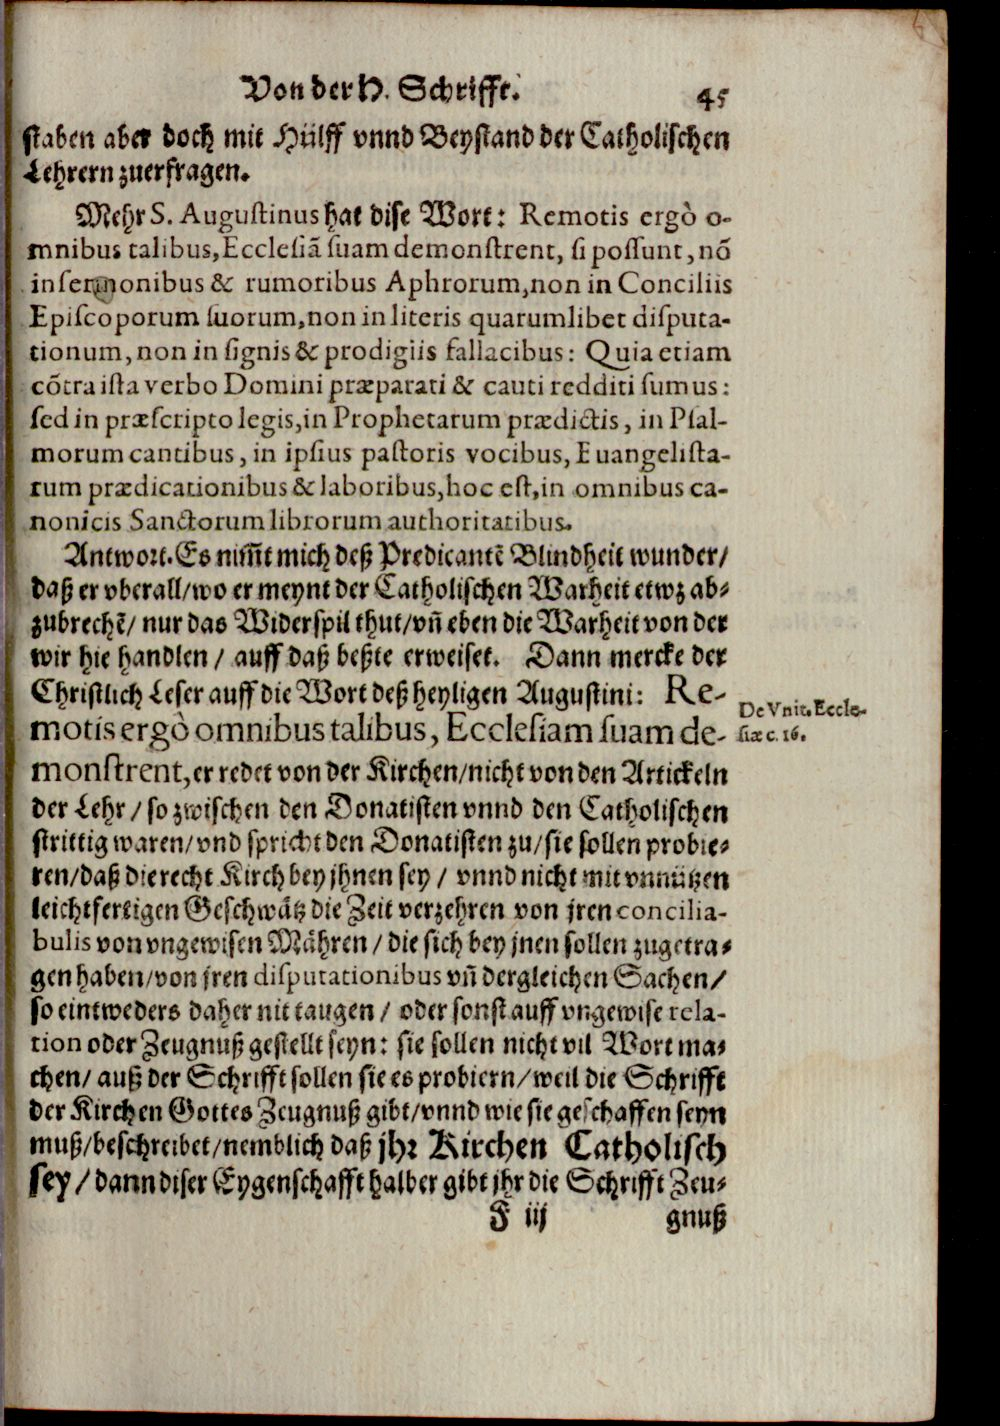 Von der H. Schrifft.
45
staben aber doch mit Hülff vnnd Beystand der Catholischen
Lehrern zuerfragen.
Mehr S. Augustinus hat dise Wort: Remotis ergò o-
mnibus talibus, Ecclesiã suam demonstrent, si possunt, nõ
in sermonibus & rumoribus Aphrorum, non in Conciliis
Episcoporum suorum, non in literis quarumlibet disputa-
tionum, non in signis & prodigiis fallacibus: Quia etiam
cõtra ista verbo Domini præparati & cauti redditi sumus:
sed in præscripto legis, in Prophetarum prædictis, in Psal-
morum cantibus, in ipsius pastoris vocibus, Euangelista-
rum prædicationibus & laboribus, hoc est, in omnibus ca-
nonicis Sanctorum librorum authoritatibus.
Antwort. Es nim̃t mich deß Predicantẽ Blindheit wunder/
daß er vberall/ wo er meynt der Catholischen Warheit etwz ab-
zubrechẽ/ nur das Widerspil thut/ vñ eben die Warheit von der
wir hie handlen/ auff daß beßte erweiset. Dann mercke der
Christlich Leser auff die Wort deß heyligen Augustini: Re-
motis ergò omnibus talibus, Ecclesiam suam de-
monstrent, er redet von der Kirchen/ nicht von den Artickeln
der Lehr/ so zwischen den Donatisten vnnd den Catholischen
strittig waren/ vnd spricht den Donatisten zu/ sie sollen probie-
ren/ daß die recht Kirch bey jhnen sey/ vnnd nicht mit vnnützen
leichtfertigen Geschwätz die Zeit verzehren von jren concilia-
bulis von vngewisen Mähren/ die sich bey jnen sollen zugetra-
gen haben/ von jren disputationibus vñ dergleichen Sachen/
so eintweders daher nit taugen/ oder sonst auff vngewise rela-
tion oder Zeugnuß gestellt seyn: sie sollen nicht vil Wort ma-
chen/ auß der Schrifft sollen sie es probiern/ weil die Schrifft
der Kirchen Gottes Zeugnuß gibt/ vnnd wie sie geschaffen seyn
muß/ beschreibet/ nemblich daß jhr Kirchen Catholisch
sey/ dann diser Eygenschafft halber gibt jhr die Schrifft Zeu-
F iij
gnuß
De Vnit. Eccle-
siæ c. 16.